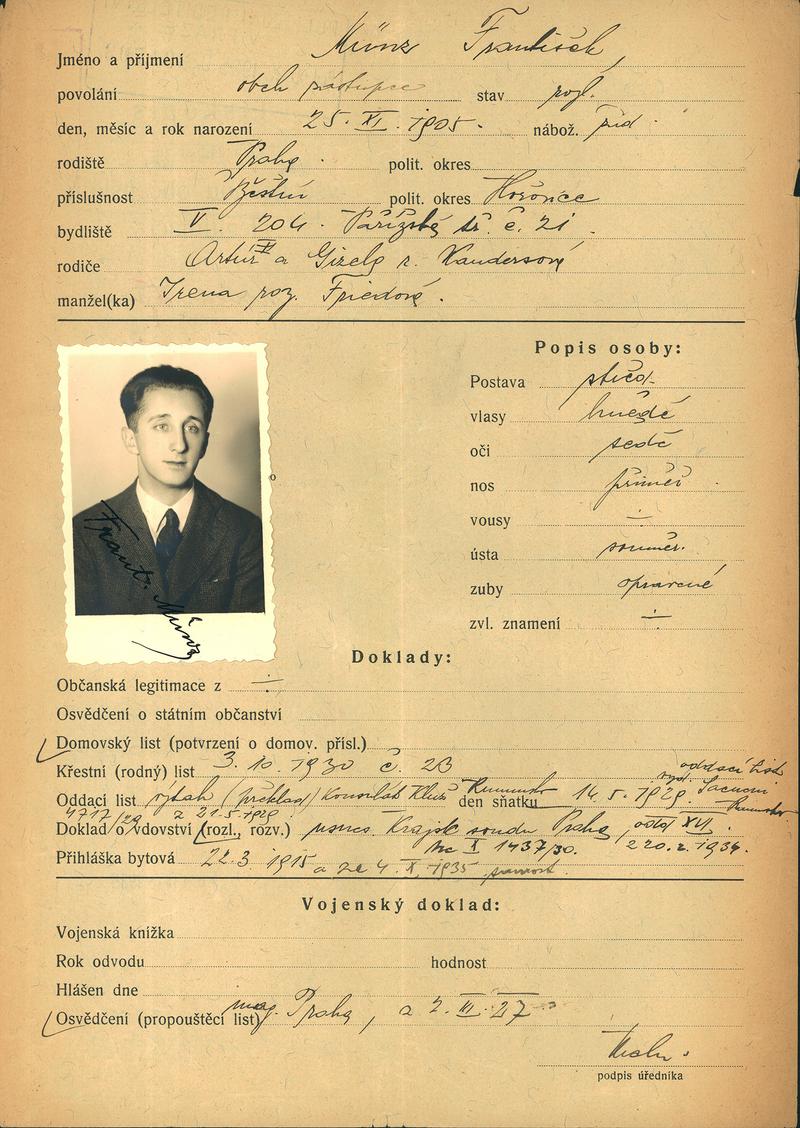 Jméno a příjmení Münz František
povolání obch zástupce stav rozl.
den, měsíc a rok narození 25. XI. 1905. nábož. žid.
rodiště Praha. polit. okres
příslušnost polit. okres Hořovice
bydliště V. 204. Pařížská tř. č. 21.
rodiče Artur a Gizela r. Kandersové
manžel(ka) Irena roz. Friedová.
Popis osoby:
Postava střed.
vlasy hnědé
oči šedé
nos přiměř.
vousy ÷
ústa souměr.
zuby opravené
zvl. znamení ÷
Frant. Münz
Doklady:
Občanská legitimace z ÷
Osvědčení o státním občanství
Domovský list (potvrzení o domov. přísl.)
oddací list
Křestní (rodný) list 3. 10. 1930 č. 23
Oddací list výtah (překlad) Konsulát Kluž den sňatku 14. 5. 1929.
z 21.5.1929
Doklad o vdovství (rozl., rozv.) usnes. Krajsk soudu Praha, odd XVI.
1437/30. z 20. 2. 1934.
Přihláška bytová 22. 3. 1915 a ze 4. X. 1935
Vojenský doklad:
Vojenská knížka
Rok odvodu hodnost
Hlášen dne
Osvědčení (propouštěcí list) mag. Praha, a 2. III. 27
podpis úředníka